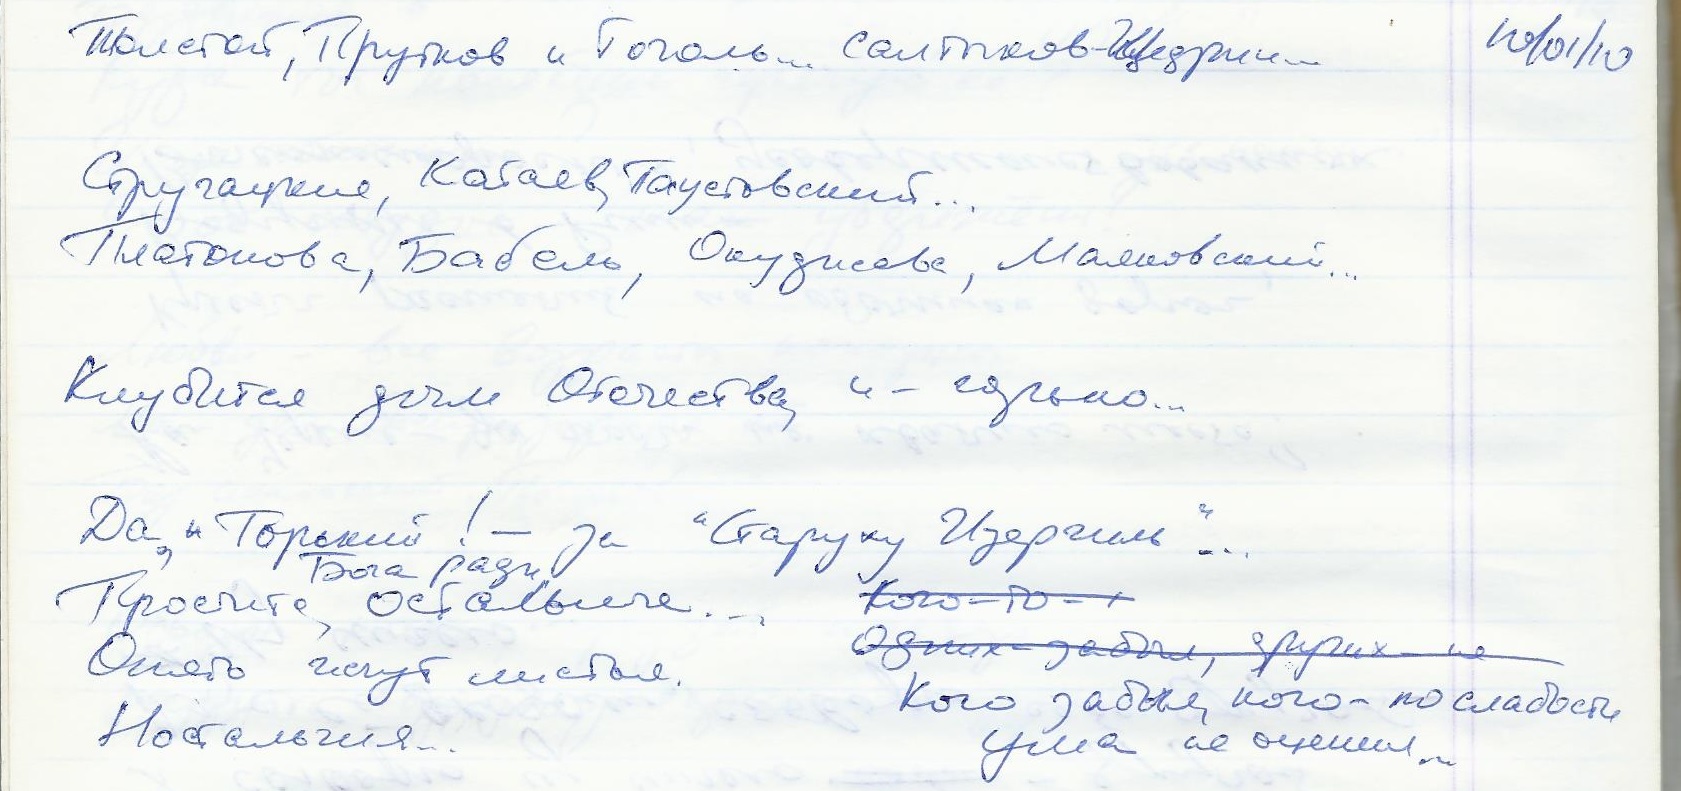 Толстой, Прутков и Гоголь... Салтыков-Щедрин... 10/01/10
Стругацкие, Катаев, Паустовский...
Платонова, Бабель, Окуджава, Маяковский...
Клубится дым Отечества, и - горько...
Да, и Горький! - за "Старуху Изергиль"...
Бога ради
Простите, остальные... Кого-то -
Одних - забыл, других - не
Опять жгут листья. Кого забыл, кого - по слабости
Ностальгия... ума не оценил...